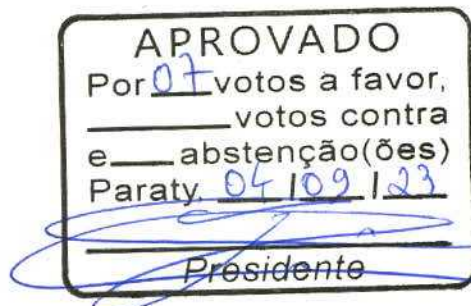 APROVADO
Por 07 votos a favor,
______votos contra
e___abstenção(ões)
Paraty, 04/09/23
Presidente